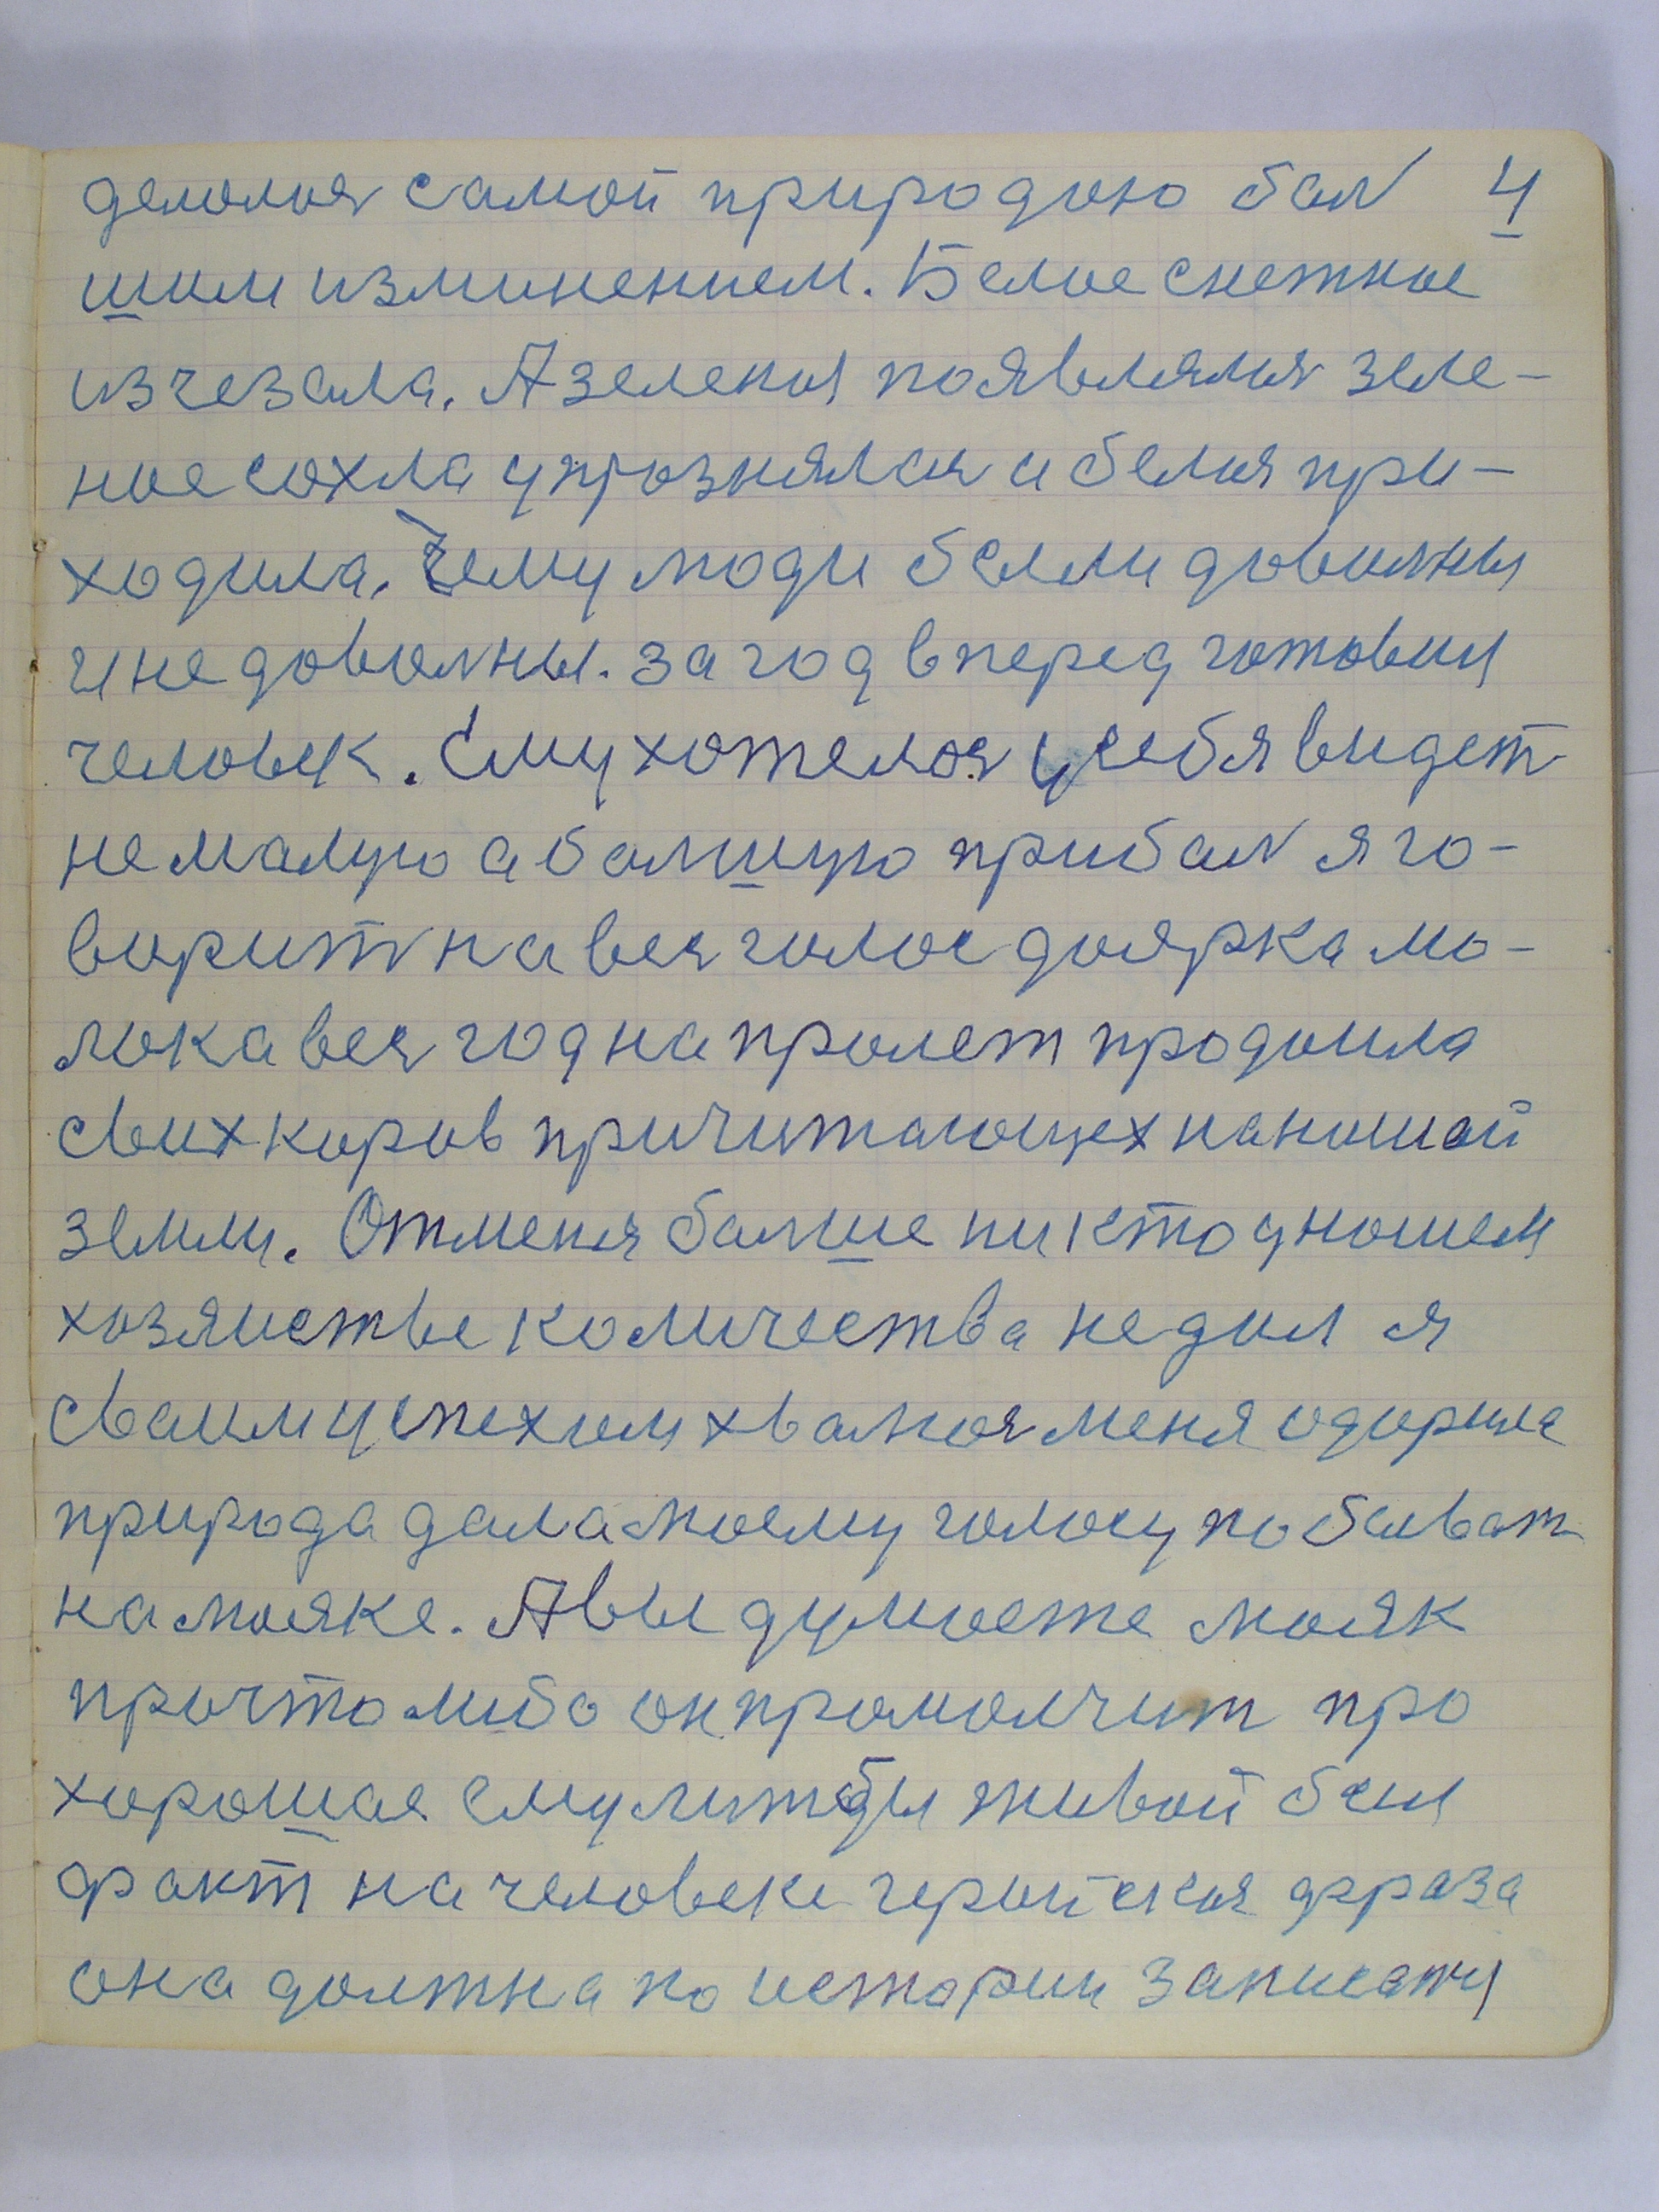 делолся самой природою бал 4
шим изминением. Белое снежное
изчезала. А зеленыя появлялися зеле-
ное сохла упрознялся и белыя при-
ходила. Чему люди были довольны
и не довольны. За год вперед готовил
человек. Ему хотелося у себя видет
не малую а балшую прибал я го-
ворить на вся голос доярка мо-
лока вся год на пролет продоила
своих коров причитающех на нашай
земли. От меня балше никто у нашем
хозяистве количества не доил я
сваим успехим хвалюся меня одорила
природа дала моему голосу побыват
на маяке. А вы думаете маяк
прочто либо он промолчит про
хорошае ему лиш бы живой был
факт на человеке геройская фраза
она должна по истории записаты